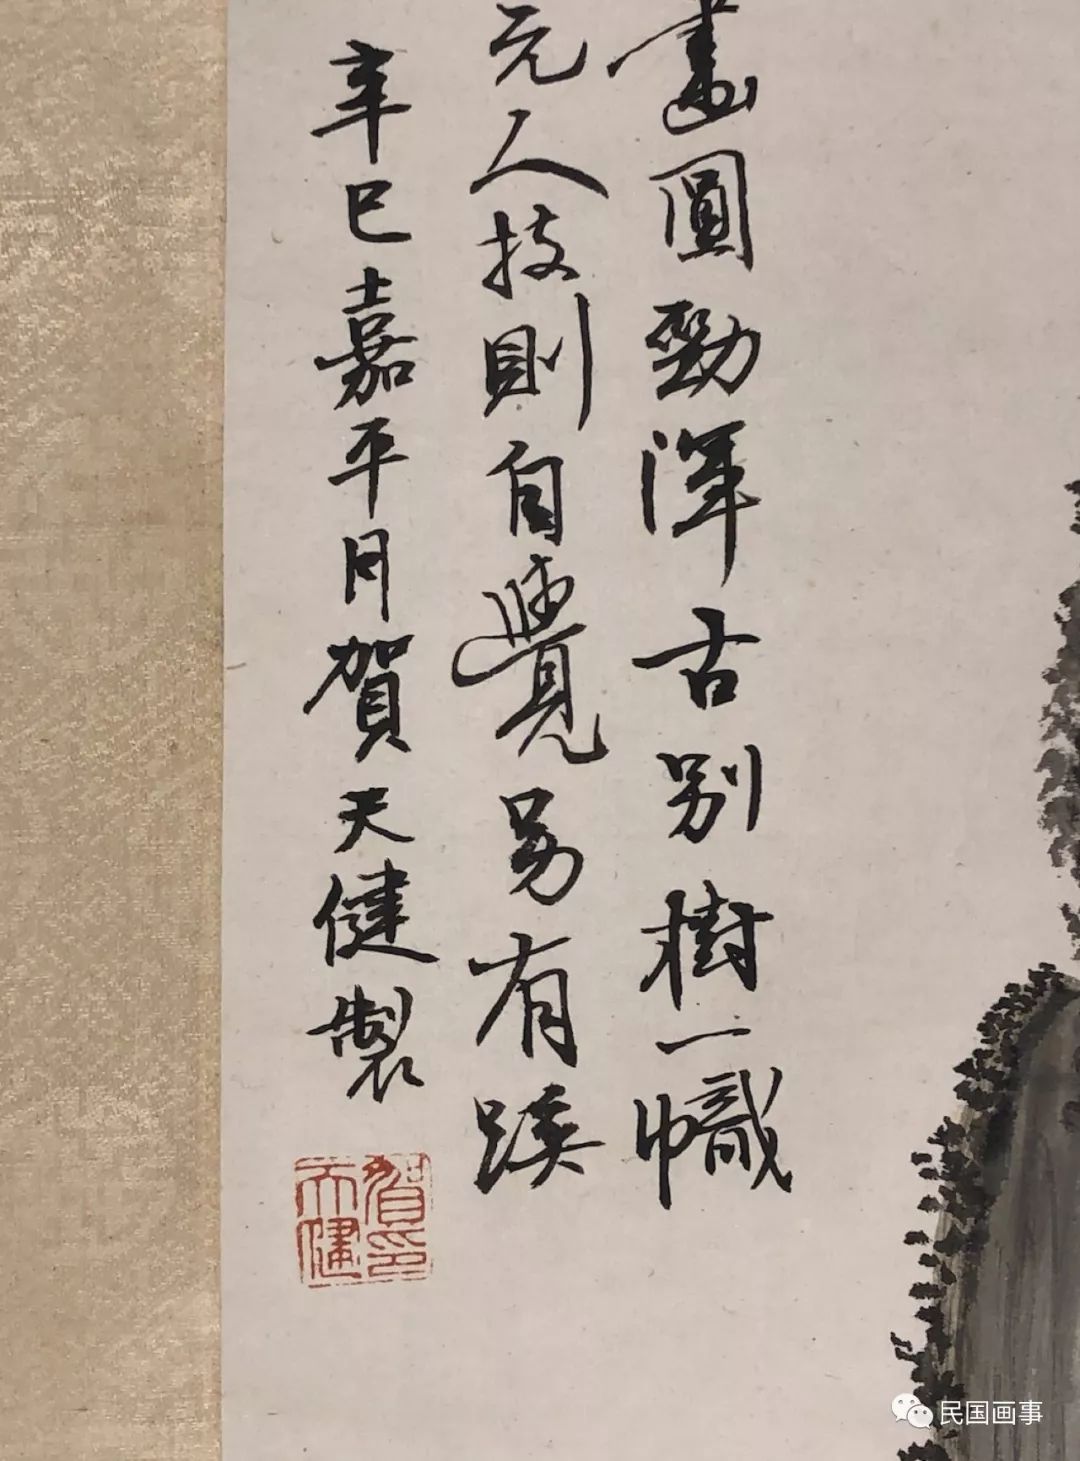 畫圓勁渾古别樹一幟
元人技則自覺另有蹊
辛巳嘉平月賀天健製
賀天健印
民国画事